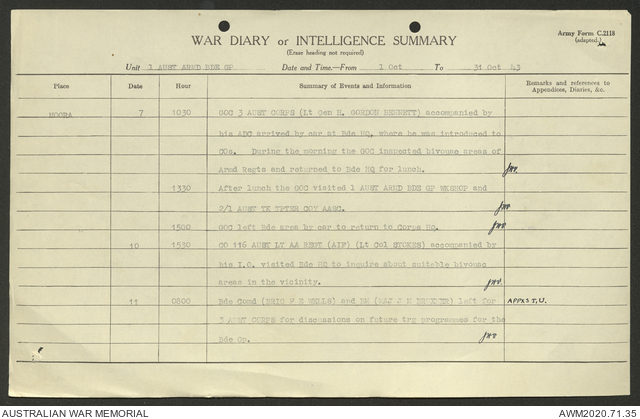 WAR DIARY or INTELLIGENCE SUMMARY
Army Form C.2118
(adapted.)
(Erase heading not required)
Unit 1 AUST ARMD BDE GP. Date and Time.—From 1 Oct To 31 Oct 43
Place Date Hour Summary of Events and Information Remarks and references to
Appendices, Diaries, &c.
MOORA 7 1030 GOC 3 AUST CORPS (Lt Gen H. GORDON BENNETT) accompanied by
his ADC arrived by car at Bde HQ, where he was introduced to
COs. During the morning the GOC inspected bivouac areas of
Armd Regts and returned to Bde HQ for lunch.
1330 After lunch the GOC visited 1 AUST ARMD BDE GP WKSHOP and
2/1 AUST TK TPTER COY AASC.
1500 GOC left Bde area by car to return to Corps HQ.
10 1530 CO 116 AUST LY AA REGT (AIF) (Lt Col STOKES) accompanied by
his I.O. visited Bde HQ to inquire about suitable bivouac
areas in the vicinity.
11 0800 Bde Comd (BRIG F E WELLS) and BM (MAJ J M) left for APPXS T, U.
3 AUST CORPS for discussions on future trg programmes for the
Bde Gp.
AUSTRALIAN WAR MEMORIAL AWM2020.71.35